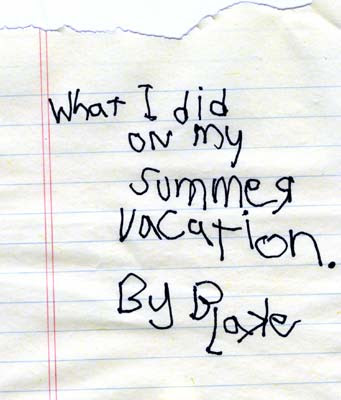 What I did
on my
summer
vacation.
By Blake